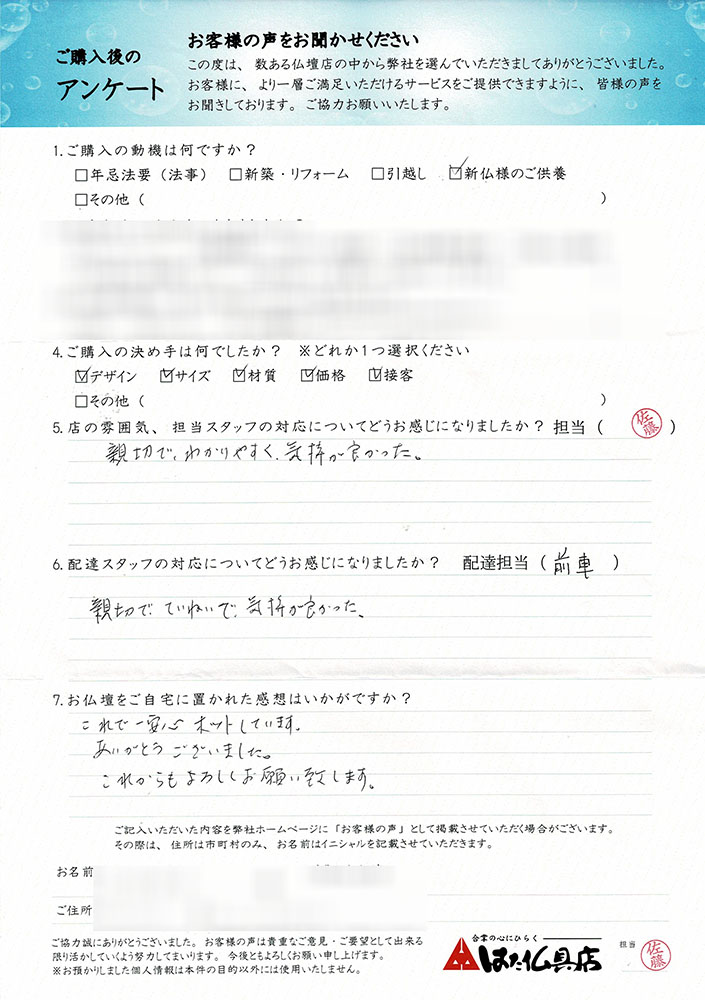 ご購入後の
アンケート
お客様の声をお聞かせください
この度は、数ある仏壇店の中から弊社を選んでいただきましてありがとうございました。
お客様に、より一層ご満足いただけるサービスをご提供できますように、皆様の声を
お聞きしております。ご協力お願いいたします。
1.ご購入の動機は何ですか？
□年忌法要（法事） □新築・リフォーム □引越し ☑新仏様のご供養
□その他（ ）
4.ご購入の決め手は何でしたか？ ※どれか1つ選択ください
☑デザイン ☑サイズ ☑材質 ☑価格 ☑接客
□その他（ ）
5.店の雰囲気、担当スタッフの対応についてどうお感じになりましたか？ 担当（ 佐藤 ）
親切で、わかりやすく、気持が良かった。
6.配達スタッフの対応についてどうお感じになりましたか？ 配達担当（ 前車 ）
親切で ていねいで、気持が良かった、
7.お仏壇をご自宅に置かれた感想はいかがですか？
これで一安心 ホットしています。
ありがとう ございました。
これからもよろしくお願い致します。
ご記入いただいた内容を弊社ホームページに「お客様の声」として掲載させていただく場合がございます。
その際は、住所は市町村のみ、お名前はイニシャルを記載させていただきます。
お名前
ご住所
ご協力誠にありがとうございました。お客様の声は貴重なご意見・ご要望として出来る
限り活かしていくよう努力してまいります。今後ともよろしくお願い申し上げます。
※お預かりしました個人情報は本件の目的以外には使用いたしません。
合掌の心にひらく
はた仏具店
担当 佐藤